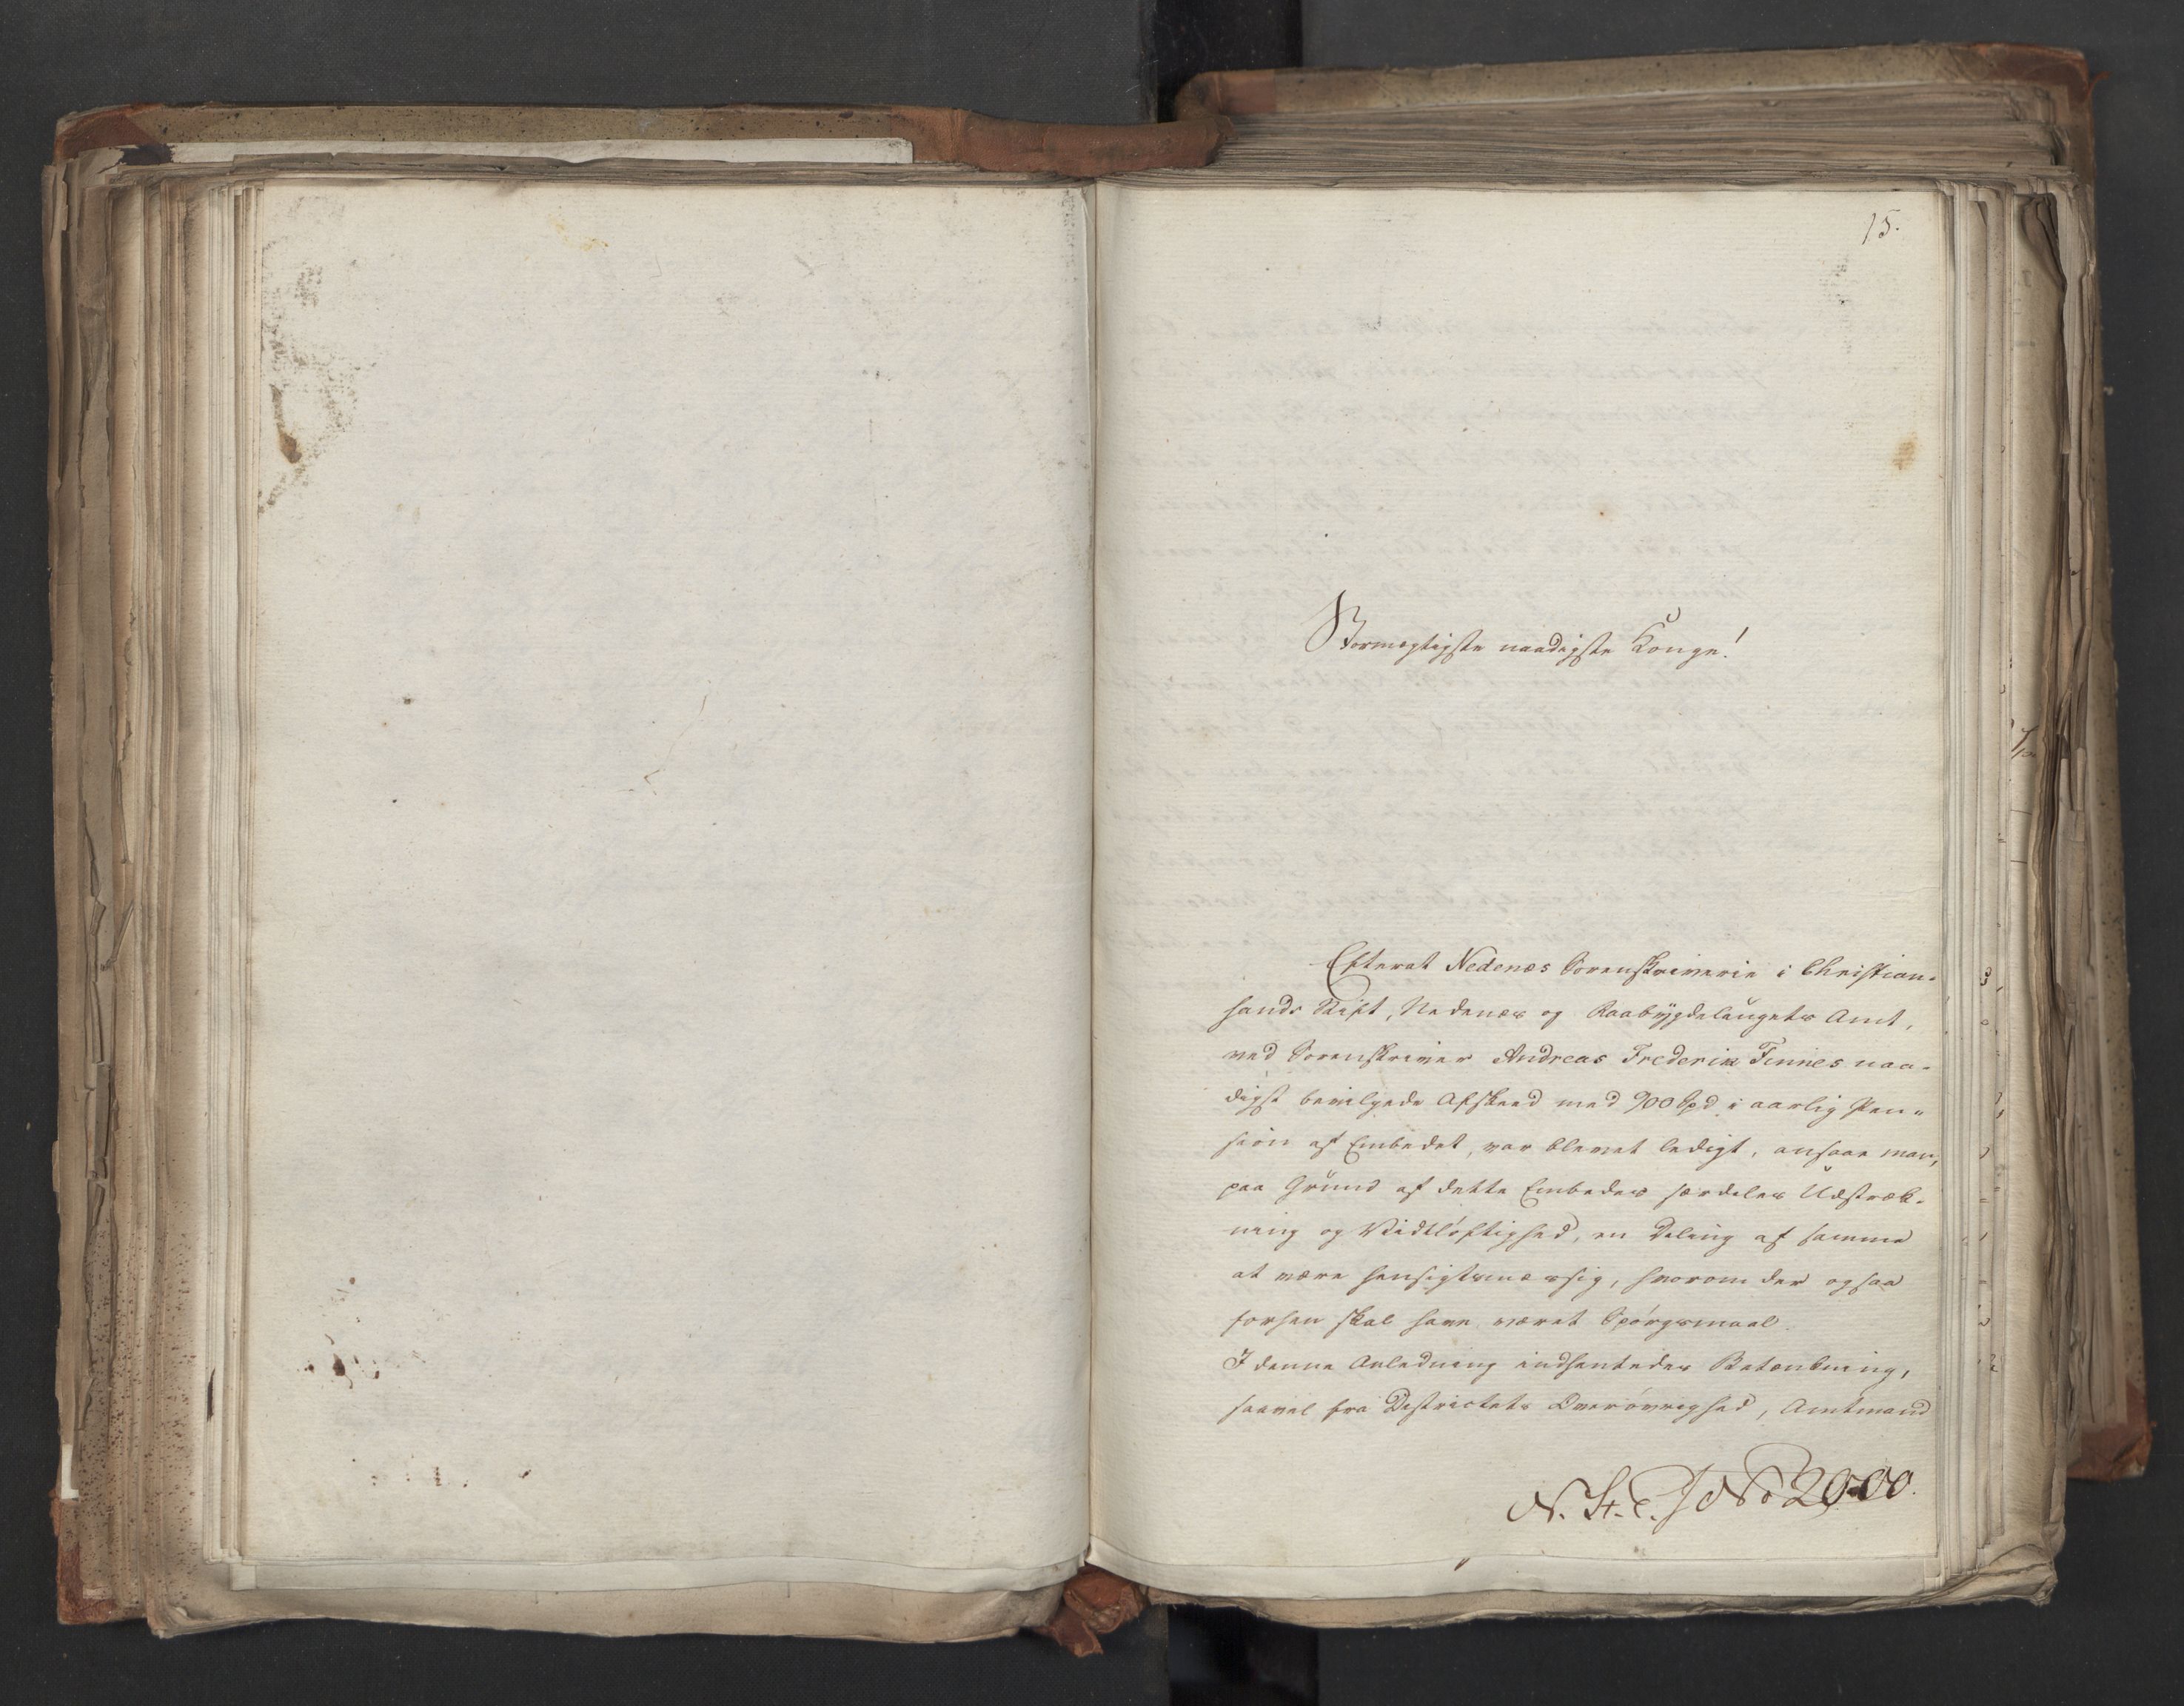 15.
Stormægtigste naadigste Konge!
Efterat Nedenæs Sorenskriverie i Christian-
sands Stift, Nedenæs og Raabÿgdelaugets Amt,
ved Sorenskriver Andreas Frederik Finnes naa-
digst bevilgede Afskeed med 900 Spd. i aarlig Pen-
sion af Embedet, var blevet ledigt, ansaae man,
paa Grund af dette Embedes særdeles Udstræk-
ning og Vidtløftighed, en Deling af samme
at være hensigtsmæssig, hvorom der ogsaa
forhen skal have været Spørgsmaal.
I denne Anledning indhentedes Betænkning,
saavel fra Districtets Overøvrighed, Amtmand
N. St. C. J No 2000.